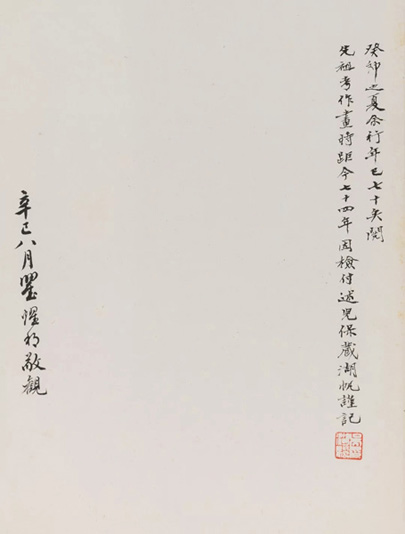 癸卯之夏余行年已七十矣閱
先祖考作畫時距今七十四年因檢付述兒保藏湖帆謹記
辛巳八月敬觀